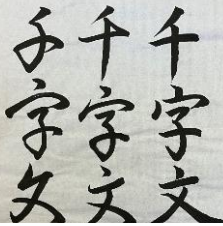 千字文
千字文
千字文